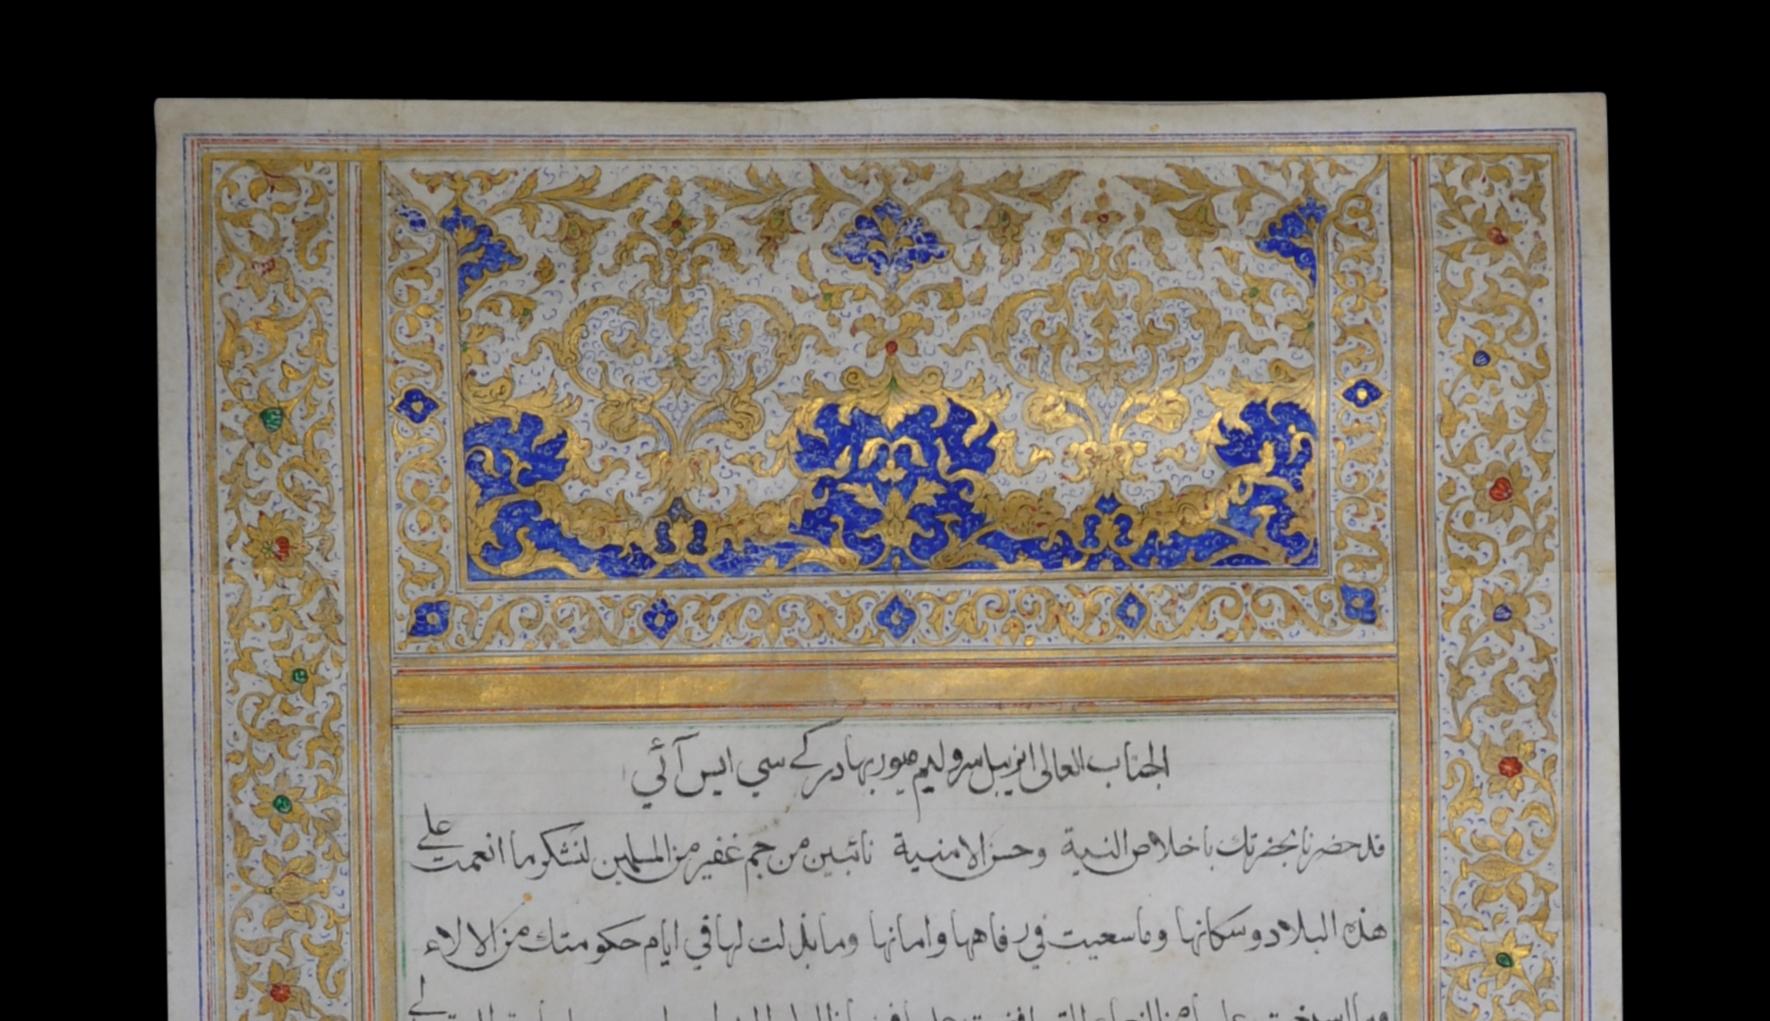 الجناب العالی انریبل سر ولیم میور بهادر کے سي ایس آئي
قد حضرنا بحضرتك باخلاص النية وحسن الامنية نائبين من جم غفير من المسلمين لنشكر ما انعمت علے
هذه البلاد و سكانها وما سعيت في رفاهها وامانها وما بذلت لها في ايام حكومتك من الالاء